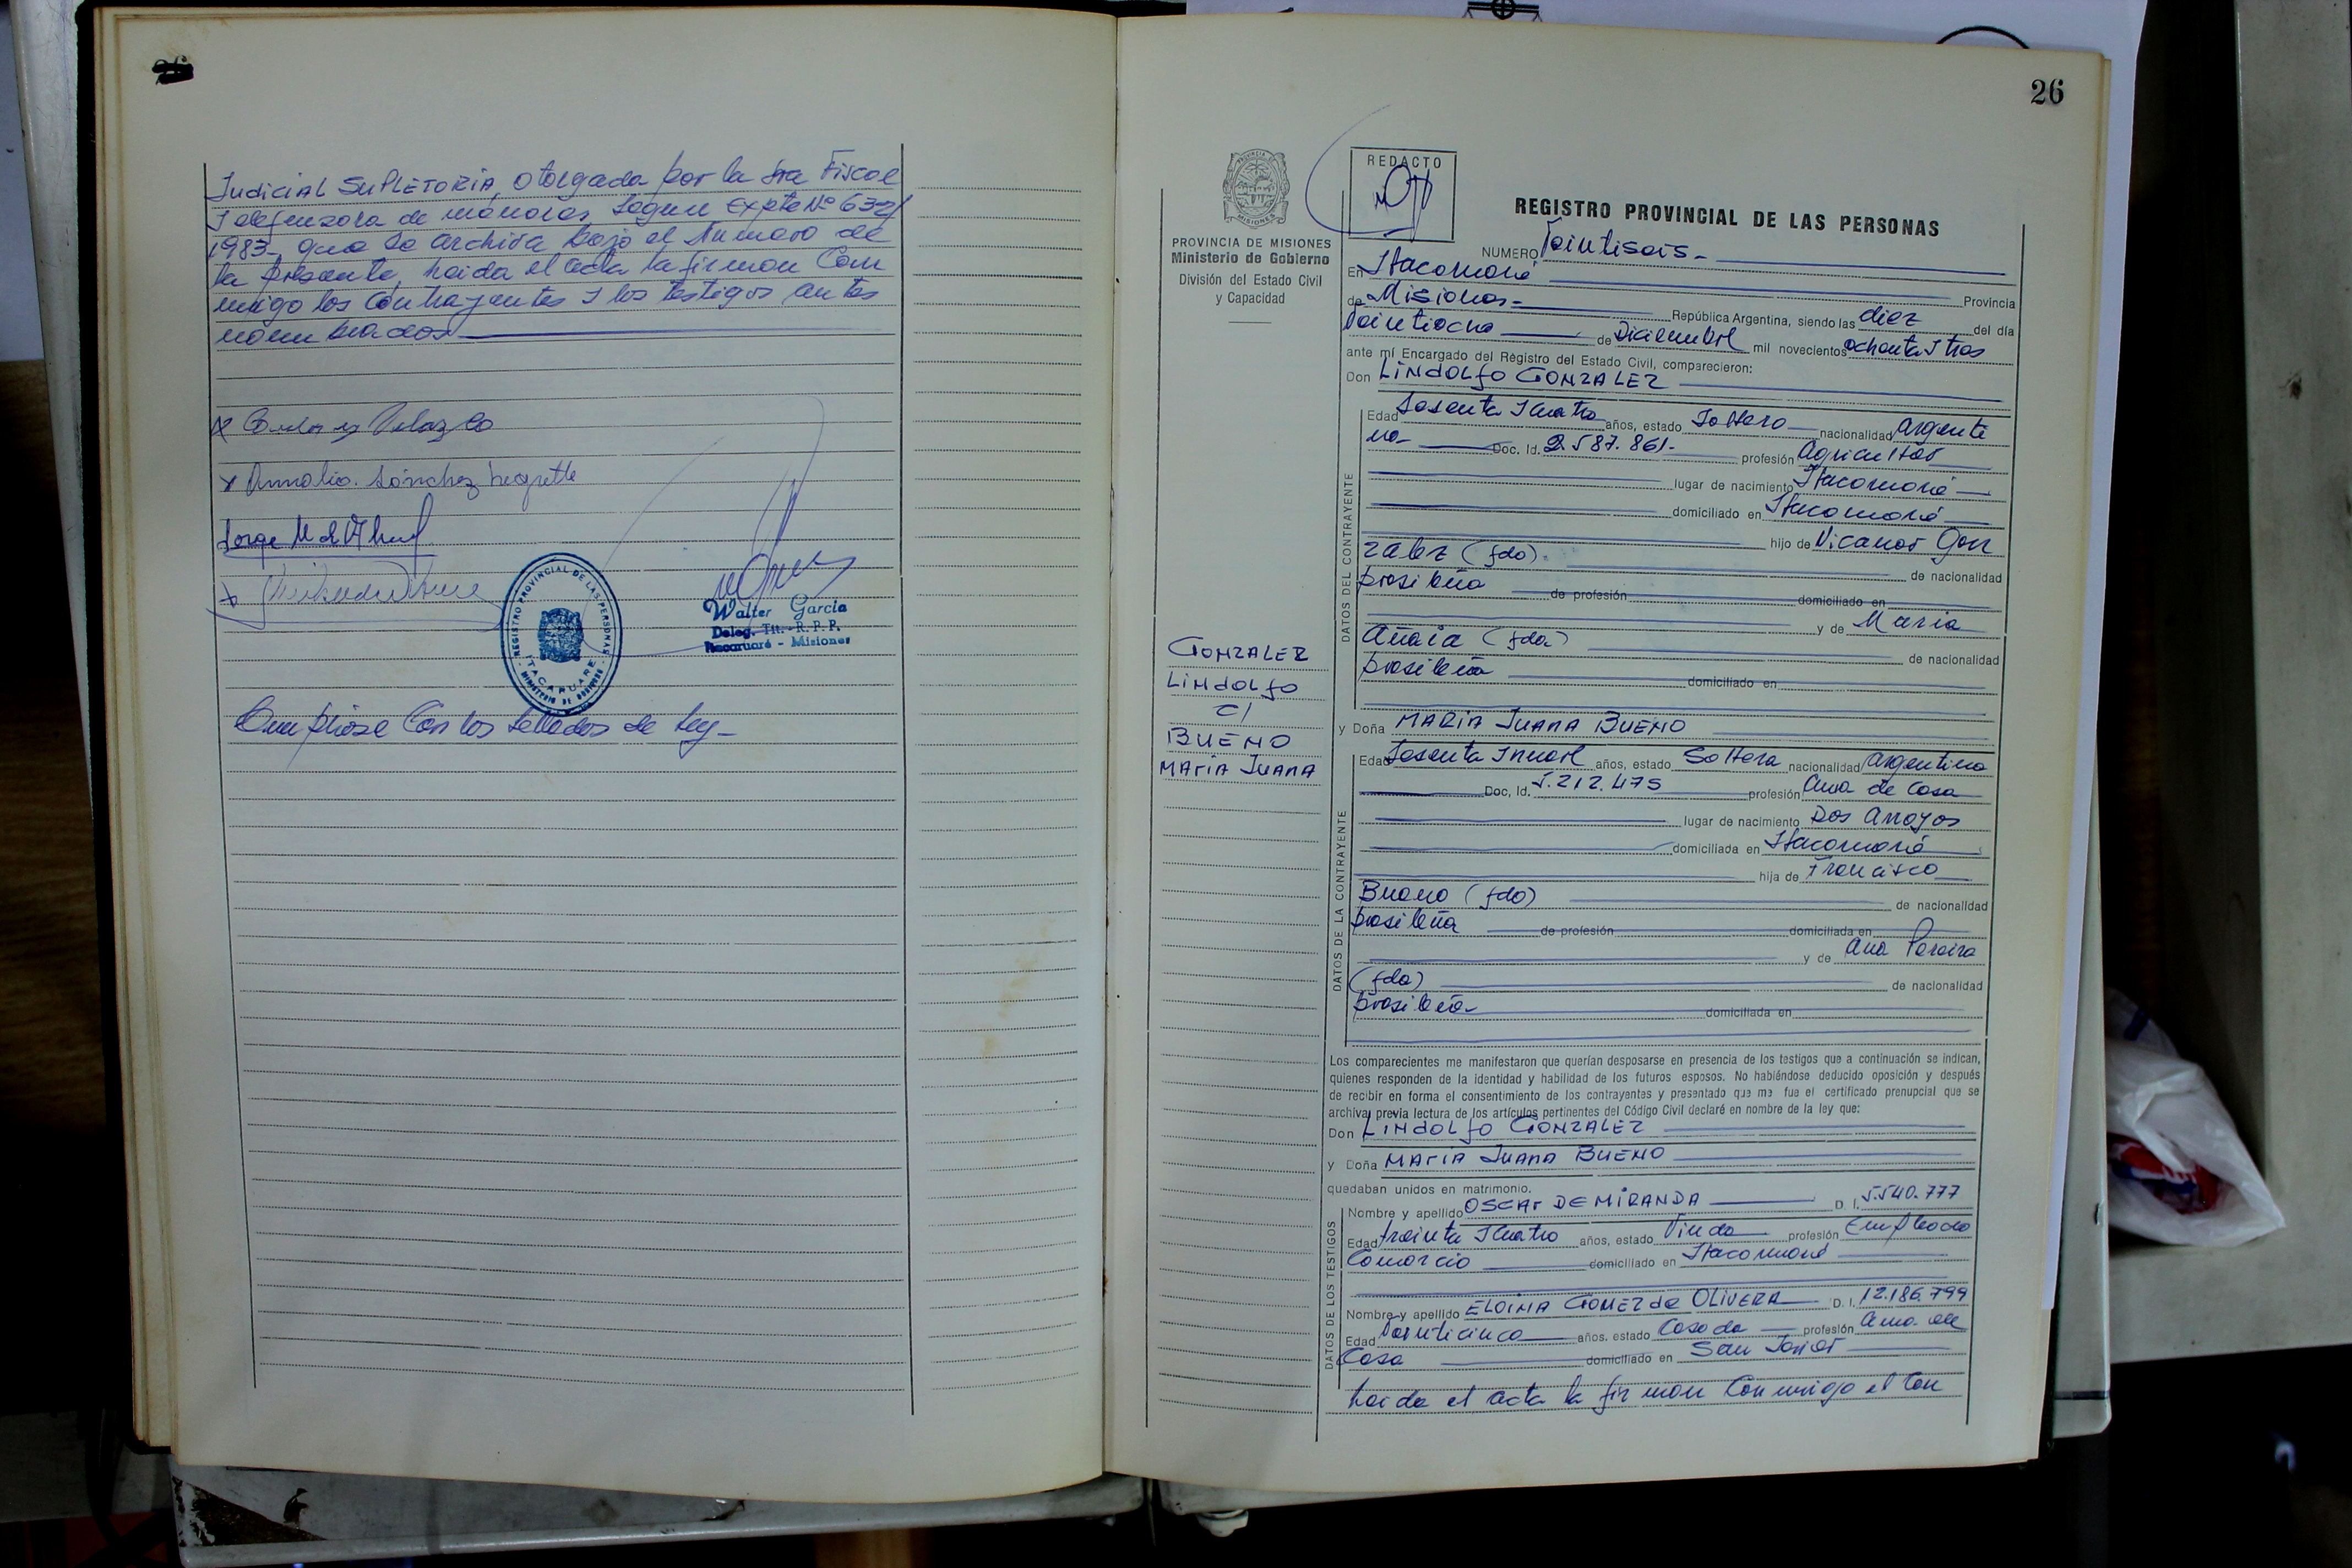 Judicial Supletoria, otorgada por la Sra Fiscal
y defensora de menores, Según Expte Nº 632/
1983- que se archiva bajo el Número de
la presente, leida el acta la firman Con
migo los Contrayentes y los testigos antes
nombrados
x Carlos Velazco
x Annalia. Sánchez Negrette
Jorge M
x
REGISTRO PROVINCIAL DE LAS PERSONAS
ITACARUARE
Walter García
Deleg. Tit. - R. P. P.
Itacaruaré - Misiones
Cumpliose Con los Sellados de Ley-
26
REDACTO
PROVINCIA DE MISIONES
Ministerio de Gobierno
División del Estado Civil
y Capacidad
GONZALEZ
LINDOLFO
C/
BUENO
MARIA JUANA
REGISTRO PROVINCIAL DE LAS PERSONAS
NUMERO Veintiseis-
En Itacaruaré Provincia
de Misiones- República Argentina, siendo las diez del día
Veintiocho de Diciembre mil novecientos ochenta y tres
ante mí Encargado del Registro del Estado Civil, comparecieron:
Don LINDOLFO GONZALEZ
DATOS DEL CONTRAYENTE
Edad Sesenta y cuatro años, estado Soltero nacionalidad Argenti
no- Doc. Id. 2.587.861- profesión Agricultor
lugar de nacimiento Itacaruaré
domiciliado en Itacaruaré
hijo de Nicanor Gon
zalez (fdo).
de nacionalidad
brasileña de profesión domiciliado en
y de Maria
Añaia (fda)
de nacionalidad
brasileña domiciliado en
y Doña MARIA JUANA BUENO
DATOS DE LA CONTRAYENTE
Edad Sesenta y nueve años, estado Soltera nacionalidad Argentina
Doc. Id. 5.212.475 profesión Ama de Casa
lugar de nacimiento Dos Arroyos
domiciliada en Itacaruaré
hija de Francisco
Bueno (fdo) de nacionalidad
brasileña de profesión domiciliada en
y de Ana Pereira
(fda) de nacionalidad
brasileña- domiciliada en
Los comparecientes me manifestaron que querían desposarse en presencia de los testigos que a continuación se indican,
quienes responden de la identidad y habilidad de los futuros esposos. No habiéndose deducido oposición y después
de recibir en forma el consentimiento de los contrayentes y presentado que me fue el certificado prenupcial que se
archiva, previa lectura de los artículos pertinentes del Código Civil declaré en nombre de la ley que:
Don LINDOLFO GONZALEZ
y Doña MARIA JUANA BUENO
quedaban unidos en matrimonio.
DATOS DE LOS TESTIGOS
Nombre y apellido OSCAR DE MIRANDA D. I. 5.540.777
Edad treinta y cuatro años, estado Viudo profesión Empleado
Comercio domiciliado en Itacaruaré
Nombre y apellido ELOINA GOMEZ de OLIVERA D. I. 12.186.799
Edad Veinticinco años, estado Casada profesión ama de
Casa domiciliado en San Javier
Leida el acta la firman Con migo el Con